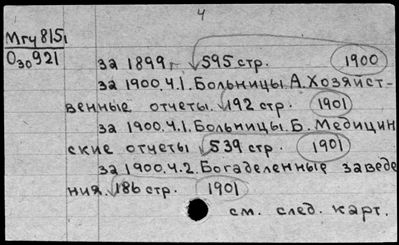 4
Мгч 8151
О30921
за 1899г. 595 стр. 1900
за 1900.ч.1. Больницы. А. Хозяйст-
венные отчеты. 192 стр. 1901
за 1900.ч.1. Больницы. Б. Медицин
ские отчеты 539 стр. 1901
за 1900.ч.2. Богаделенные заведе
ния. 186 стр. 1901
см. след. карт.